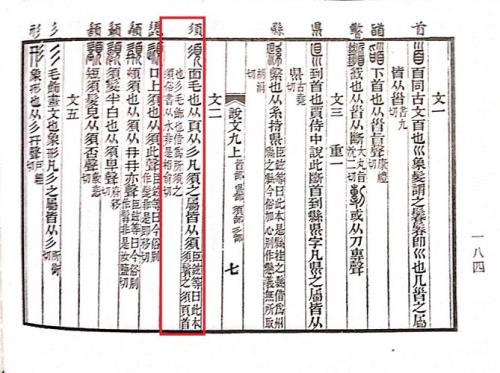 首
文一
𦣻同古文𦣻也巛象髮謂之鬊鬊卽巛也凡𩠐之屬
皆从𩠐書九切
下首也从𩠐旨聲康禮切
截也从𩠐从斷 或从刀專聲
文三 重一
県
到首也賈侍中說此斷首到縣県字凡県之屬皆从
県古堯切
縣
繫也从系持県臣鉉等曰此本是縣挂之縣借爲州縣之縣今俗加心別作懸義無所取
胡涓切
文二
說文九上 首部 県部 須部 彡部 七
須
面毛也从頁从彡凡須之屬皆从須臣鉉等曰此本須鬢之須頁首
也彡毛飾也借爲所須之須俗書从水非是相俞切
口上須也从須此聲臣鉉等曰今俗別作髭非是即移切
頰須也从須从冄冄亦聲臣鉉等曰今俗別作髯非是汝鹽切
須髮半白也从須卑聲
短須髮皃从須否聲敷悲切
文五
彡
毛飾畫文也象形凡彡之屬皆从彡所銜切
形
象形也从彡幵聲戶經切
一八四